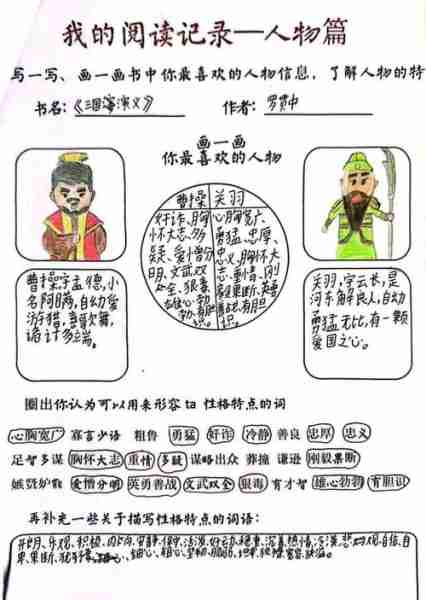 我的阅读记录—人物篇
写一写、画一画书中你最喜欢的人物信息，了解人物的特
书名：《三国演义》 作者：罗贯中
画一画
你最喜欢的人物
曹操 关羽
奸诈、胸
怀大志、多
疑、爱憎分
明、文武双
全、狠毒
雄心勃
勃、有胆
识。
心胸宽广、
勇猛、忠厚、
忠义、胸怀大
志、重情、刚
毅果断、英勇
善战、有胆
识。
曹操，字孟德，小
名阿瞒，自幼爱
游猎，喜歌舞，
诡计多端。
关羽，字云长，是
河东解良人，自幼
勇猛无比，有一颗
爱国之心。
圈出你认为可以用来形容 ta 性格特点的词
心胸宽广 寡言少语 粗鲁 勇猛 奸诈 冷静 善良 忠厚 忠义
足智多谋 胸怀大志 重情 多疑 谋略出众 莽撞 谦逊 刚毅果断
嫉贤妒能 爱憎分明 英勇善战 文武双全 狠毒 有才智 雄心勃勃 有胆识
再补充一些关于描写性格特点的词语：
开朗、乐观、积极、内向、安静、
果断、细心、粗心、坚韧、脆弱、坦率